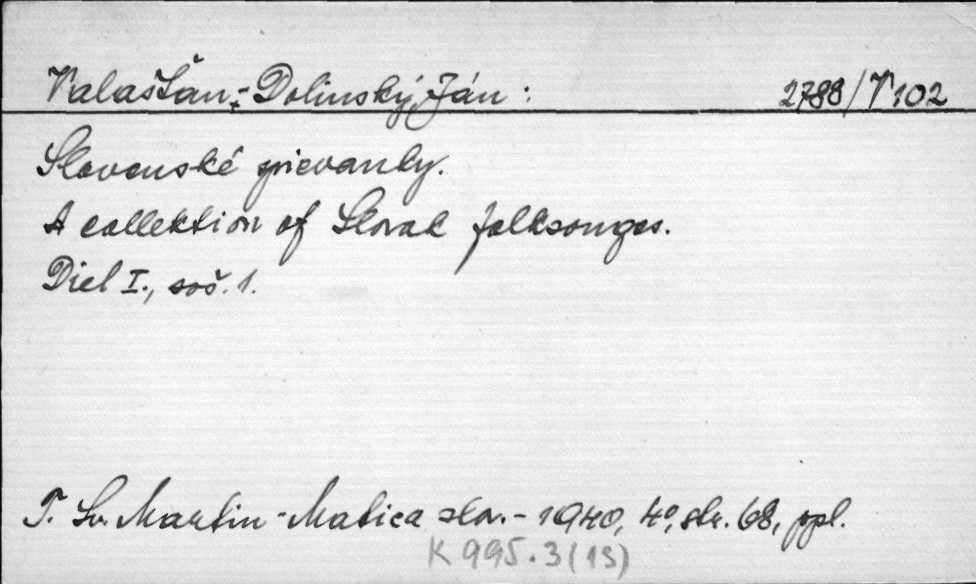 Valašťan-Dolinský, Ján: 2788/V102
Slovenské spievanky.
A collektion of Slovak folksonges.
Diel I., soš. 1.
T. Sv. Martin - Matica slov. - 1940, 4°, str. 68, ppl.
K 995.3(13)